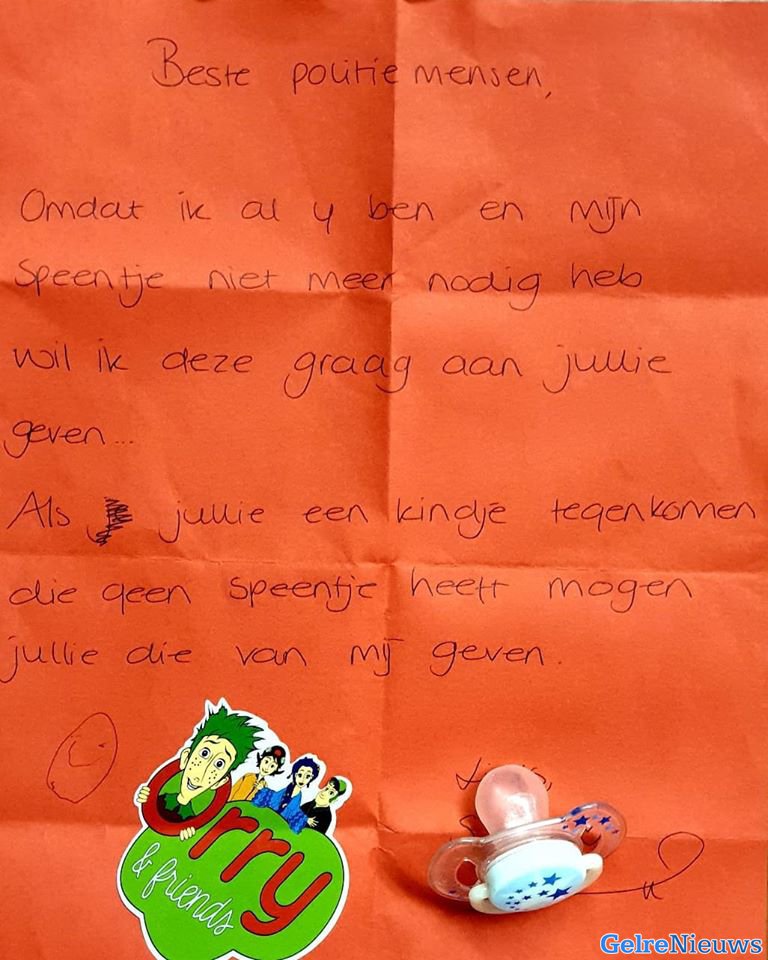 Beste politie mensen,
Omdat ik al 4 ben en mijn
speentje niet meer nodig heb
wil ik deze graag aan jullie
geven...
Als jullie een kindje tegenkomen
die geen speentje heeft mogen
jullie die van mij geven.
Orry
& friends
GelreNieuws